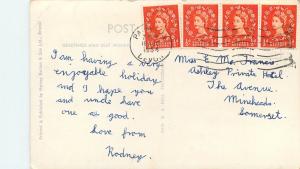 POST
I am having a very
enjoyable holiday
and I hope you
and uncle have
one as good.
Love from
Rodney.
Miss E Ma. Francis
Ashley Private Hotel
The Avenue.
Minehead.
Somerset.